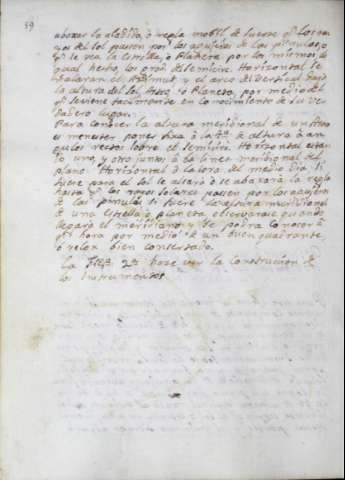 59
abaxar la aladida, ò regla mobil de suerte qe. los ra
zos del sol pasen por los agujeros de las pinulas, o
qe. se vea la estrella, ò Planeta por los mismos, lo
qual hecho los grados del semicir. Horizontal se
ñalaran el Azimut, y el arco del Vertical dara
la altura del Sol, Astro, ò Planeta, por medio del
qe. se viene facilmente en conocimiento de su ver
dadero lugar.
Para conocer la altura meridional de un Astro
es menester poner fixa à la de altura à an
gulos rectos sobre el semicir. Horizontal estan
do uno, y otro juntos à la linea meridional del
plano Horizontal à la ora del medio dia si
fuere para el Sol se alzarà ò se abaxarà la regla
hasta qe. los rayos solares pasen por los agujeros
de las pinulas si fuere la altura meridional
de una estrella, o planeta observarase quando
llegare el meridiano, y se podra conocer à
qe. hora por medio de un buen quadrante
ò relox bien concertado.
La Figa. 2a. hace ver la construcion de
los Instrumentos